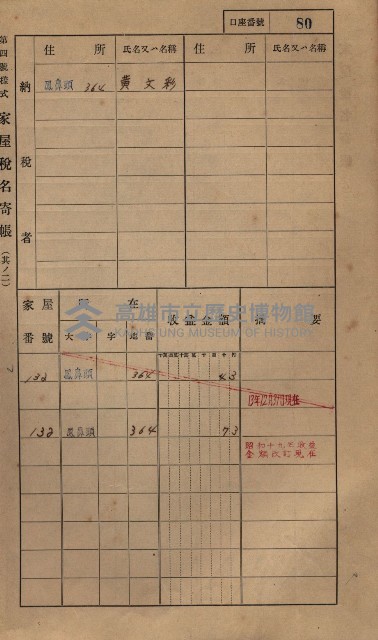 口座番號 80
第四號樣式 家屋稅名寄帳 (其ノ二)
納稅者
住所 氏名又ハ名稱 住所 氏名又ハ名稱
鳳鼻頭 364 黃文彩
家屋番號 所在 收益金額 摘要
大字 字 地番
高雄市立歷史博物館
KAOHSIUNG MUSEUM OF HISTORY
132 鳳鼻頭 364 43
13年12月31日現在
132 鳳鼻頭 364 73
昭和十九年收益
金額改訂現在